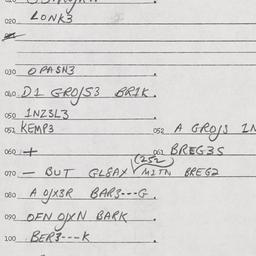 020 LONK3
030 OPASN3
040 D1 GROJS3 BR1K.
050 1NZSL3
051 KEMP3 052 A GROJS 1N
060 + 061 BREG3S
(252)
070 — BUT GLSAY M1TN BREG2
080 A OJX3R BAR3---G.
090 OFN OJXN BARK
100 BER3---K